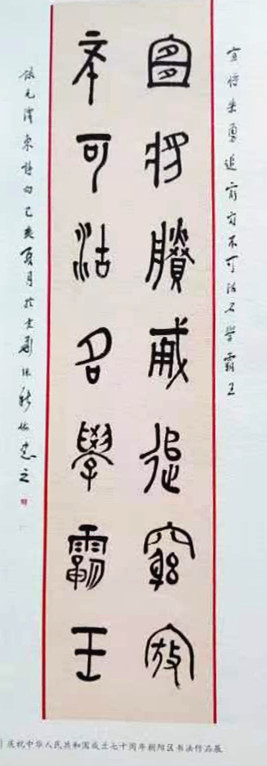 宜将剩勇追穷寇不可沽名学霸王
宜將賸勇追窮寇
不可沽名學霸王
録毛澤東詩句己亥夏月於京
庆祝中华人民共和国成立七十周年朝阳区书法作品展